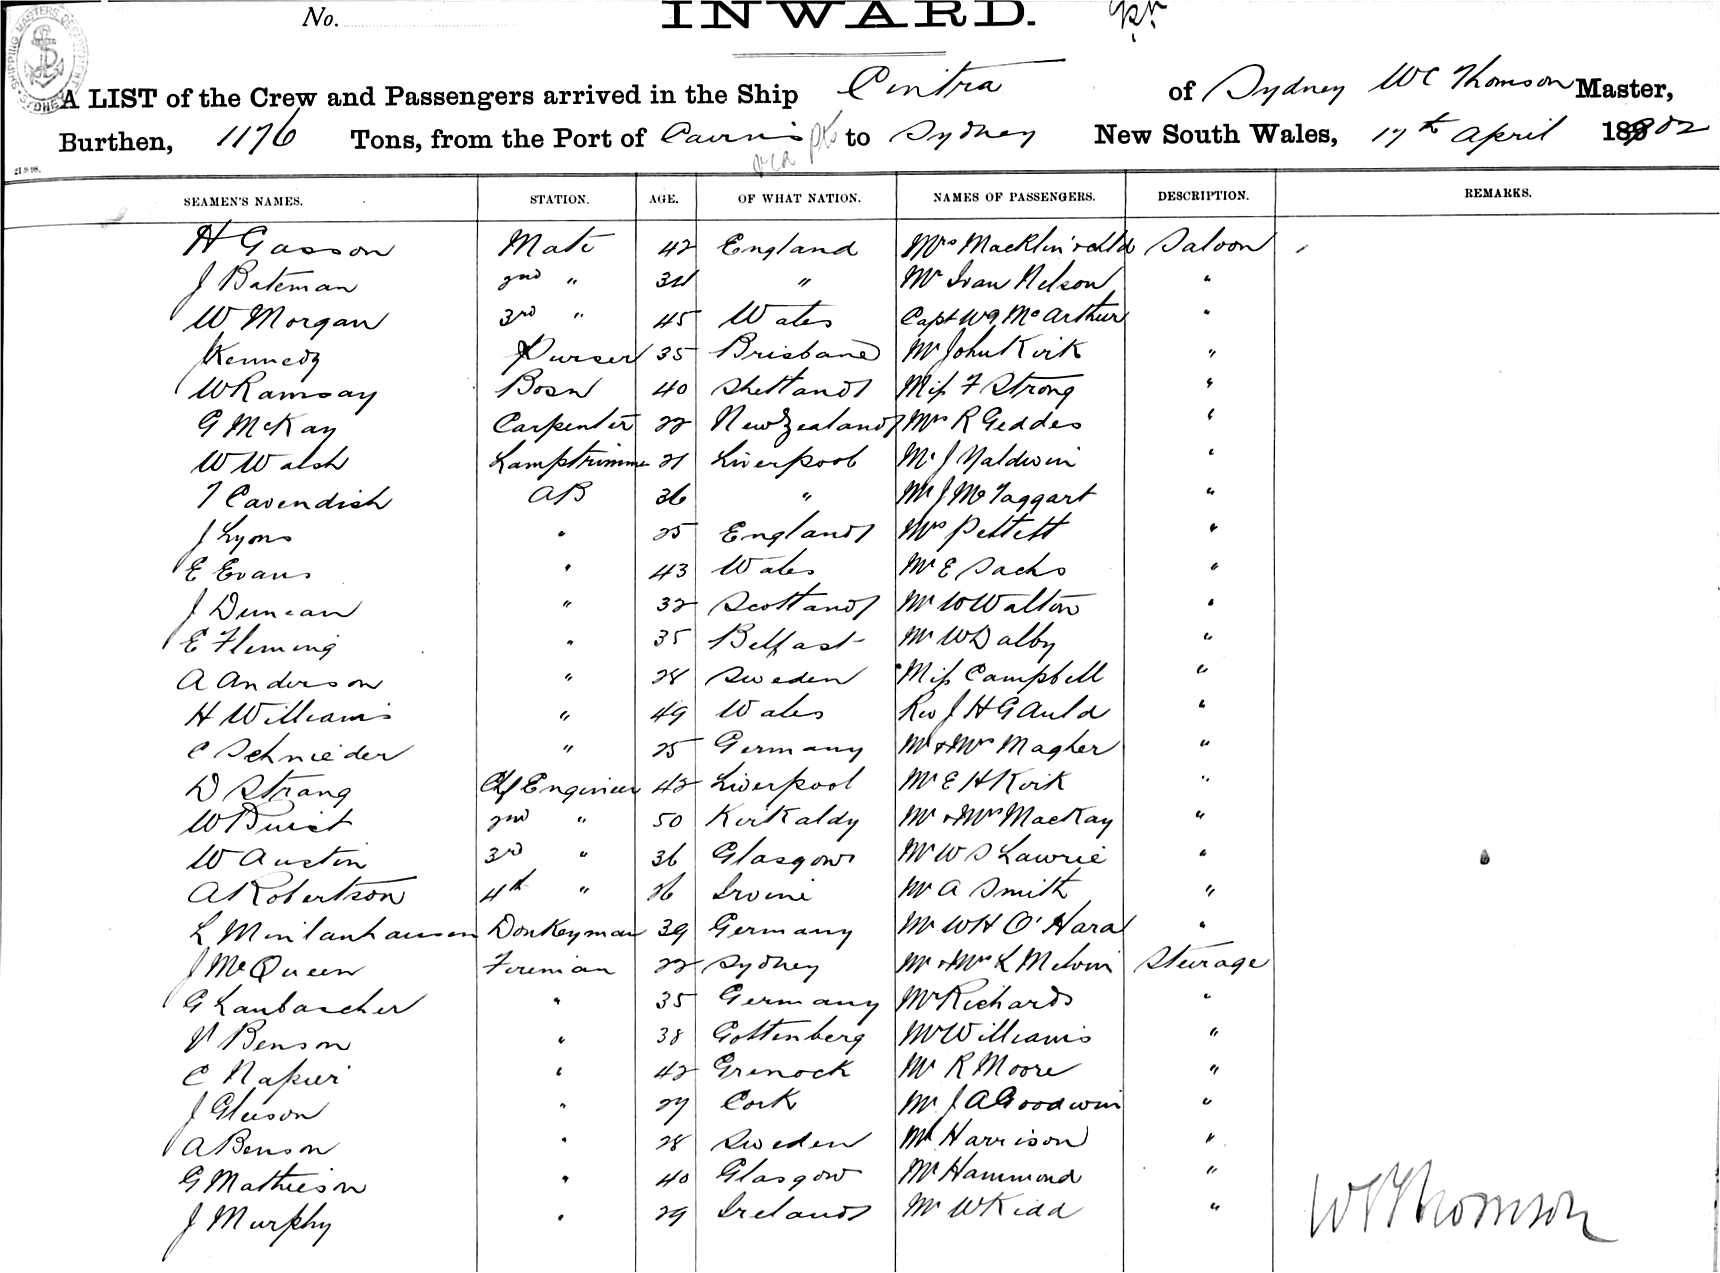 No.
INWARD.
SHIPPING MASTERS DEPARTMENT SYDNEY
A LIST of the Crew and Passengers arrived in the Ship Cintra of Sydney WC Thomson Master,
Burthen, 1176 Tons, from the Port of Cairns via pts to Sydney New South Wales, 17th April 1902
21 9 98.
SEAMEN'S NAMES. STATION. AGE. OF WHAT NATION. NAMES OF PASSENGERS. DESCRIPTION. REMARKS.
H Gasson Mate 42 England Mrs Macklin & chld Saloon
J Bateman 2nd " 34 " Mr Ivan Nelson "
W Morgan 3rd " 45 Wales Capt WG McArthur "
J Kennedy Purser 35 Brisbane Mr John Kirk "
W Ramsay Bosn 40 Shetland Miss F Strong "
G McKay Carpenter 22 New Zealand Mrs R Geddes "
W Walsh Lamptrimmer 21 Liverpool Mr J Naldwin "
T Cavendish AB 36 " Mr J McTaggart "
J Lyons " 25 England Mrs Pettett "
E Evans " 43 Wales Mr E Sachs "
J Duncan " 32 Scotland Mr W Walton "
E Fleming " 35 Belfast Mr W Dalby "
A Anderson " 28 Sweden Miss Campbell "
H Williams " 49 Wales Rev J H G Auld "
C Schnieder " 25 Germany Mr & Mrs Magher "
D Strang Chf Engineer 42 Liverpool Mr E H Kirk "
W Buist 2nd " 50 Kirkaldy Mr & Mrs MacKay "
W Austin 3rd " 36 Glasgow Mr W S Lawrie "
A Robertson 4th " 26 Irvine Mr A Smith "
L Donkeyman 39 Germany Mr WH O'Hara "
J McQueen Fireman 22 Sydney Mr & Mrs L Melvin Steerage
G Laubascher " 35 Germany Mr Richards "
V Benson " 38 Gottenberg Mr Williams "
C Napier " 42 Grenock Mr R Moore "
J Gleeson " 27 Cork Mr J A Goodwin "
A Benson " 28 Sweden Mr Harrison "
G Mathieson " 40 Glasgow Mr Hammond "
J Murphy " 29 Ireland Mr W Kidd "
WC Thomson